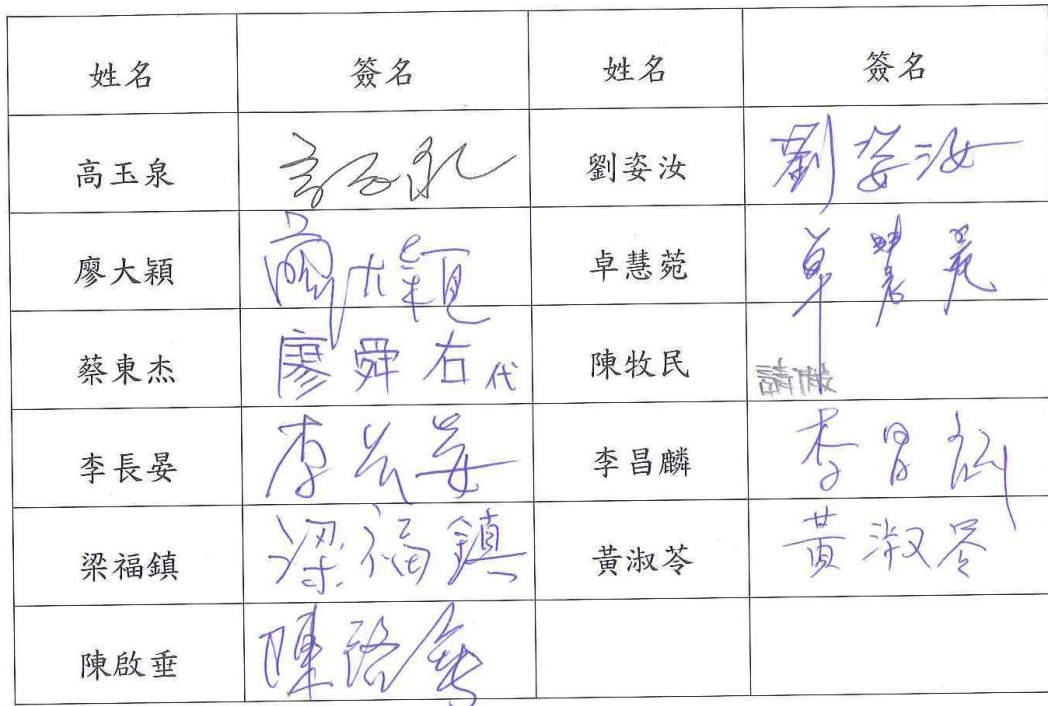 姓名 簽名 姓名 簽名
高玉泉 高玉泉 劉姿汝 劉姿汝
廖大穎 廖大穎 卓慧菀 卓慧菀
蔡東杰 廖舜右代 陳牧民 請假
李長晏 李長晏 李昌麟 李昌麟
梁福鎮 梁福鎮 黃淑苓 黃淑苓
陳啟垂 陳啟垂